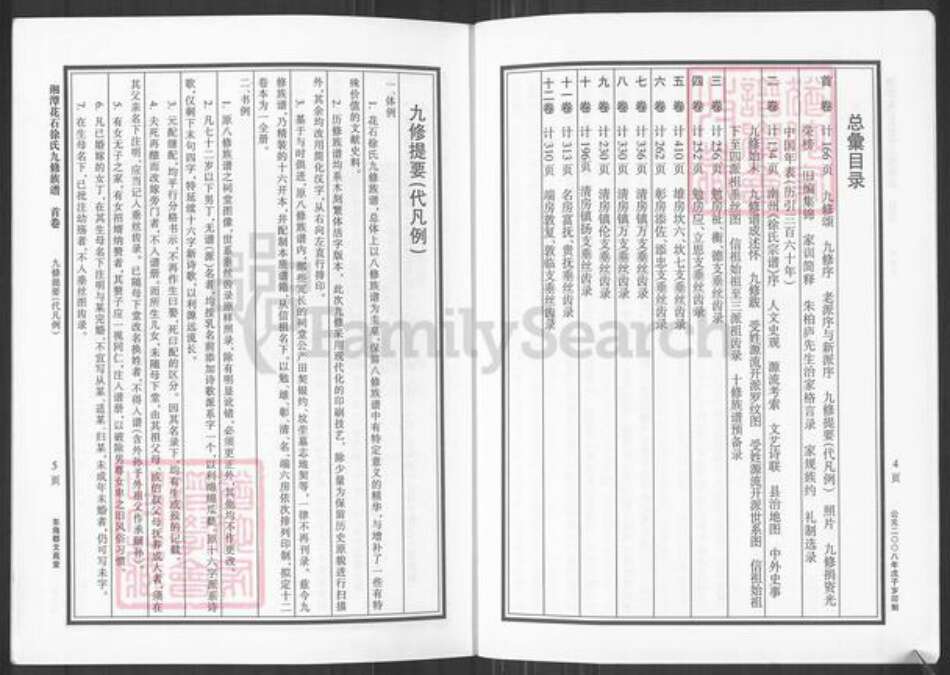 总彙目录
首卷 计166页 九修颂 九修序 老派序与新派序 九修提要(代凡例) 照片 九修捐资光
荣榜 旧编集锦 家训简释 朱柏庐先生治家格言录 家规族约 礼制选录
中国年表(历引三百六十年)
二卷 计134页 南州(徐氏宗谱)序 人文史观 源流考索 文艺诗联 县治地图 中外史事
九修始末 九修谱成述怀 九修跋 受姓源流开派罗纹图 受姓源流开派世系图 信祖始祖
下至四派祖垂丝图 信祖始祖至三派祖齿录 十修族谱预备录
三卷 计256页 勉房祉、衡、德支垂丝齿录
四卷 计252页 勉房应、立思支垂丝齿录
五卷 计410页 雄房坎六、坎七支垂丝齿录
六卷 计262页 彰房添佐、添忠支垂丝齿录
七卷 计336页 清房镇万支垂丝齿录
八卷 计330页 清房镇万支垂丝齿录
九卷 计230页 清房镇伦支垂丝齿录
十卷 计196页 清房镇扬支垂丝齿录
十一卷 计313页 名房富抚、贵抚垂丝齿录
十二卷 计310页 端房敦复、敦临支垂丝齿录
4页
公元二〇〇八年戊子岁印制
九修提要(代凡例)
一、体例
1. 花石徐氏九修族谱,总体上以八修族谱为主草,保留八修族谱中有特定意义的精华,与增补了一些有特
殊价值的文献史料。
2. 历修族谱均系木刻繁体活字版本。此次九修采用现代化的印刷技艺,除少量为保留历史原貌进行扫描
外,其余均改用简化汉字,从右向左直行排印。
3. 基于与时俱进,原八修族谱内,那些冗长的祠堂公产田契银约、坟茔墓志地契等,一律不再刊录。兹今九
修族谱,乃精装的十六开本,并配制本族谱箱,从信祖名下,以勉、雄、彰、清、名、端六房依次排列印制,拟定十二
卷本为一全册。
二、书例
1. 原八修族谱之祠堂图像、世系垂丝齿录原样照录,除有明显讹错,必须更正外,其他均不作更改。
2. 凡七十二岁以下男丁,无谱(派)名者,均按乳名前添加诗歌派系字一个,以利绵绵瓜瓞。原十六字派系诗
歌,仅剩下末句四字,特延续十六字新诗歌,以利源远流长。
3. 元配继配,均平行分格书示,不再作生曰娶、死曰配的区分。因其名录下,均有生或殁的记载。
4. 夫死再醮而改嫁旁门者,不入谱册。而所生儿女,未随母下堂,由其祖父母、或伯叔父母抚养成人者,须在
其父亲名下注明,应当记入垂丝齿录。已随母下堂改名换姓者,不得入谱(含外孙子外祖父作承嗣孙)。
5. 有女无子之家,有女招婿纳赘者,其赘子应一视同仁,注入谱册,以破除男尊女卑之旧风俗习惯。
6. 凡已婚嫁的女丁,在其生母名下注明与某完婚,不宜写从某、适某、归某,未成年未婚者,仍可写未字。
7. 在生母名下,已批注幼殇者,不入垂丝图齿录。
湘潭花石徐氏九修族谱 首卷 九修提要(代凡例)
5页
东海德文庭堂
FamilySearch